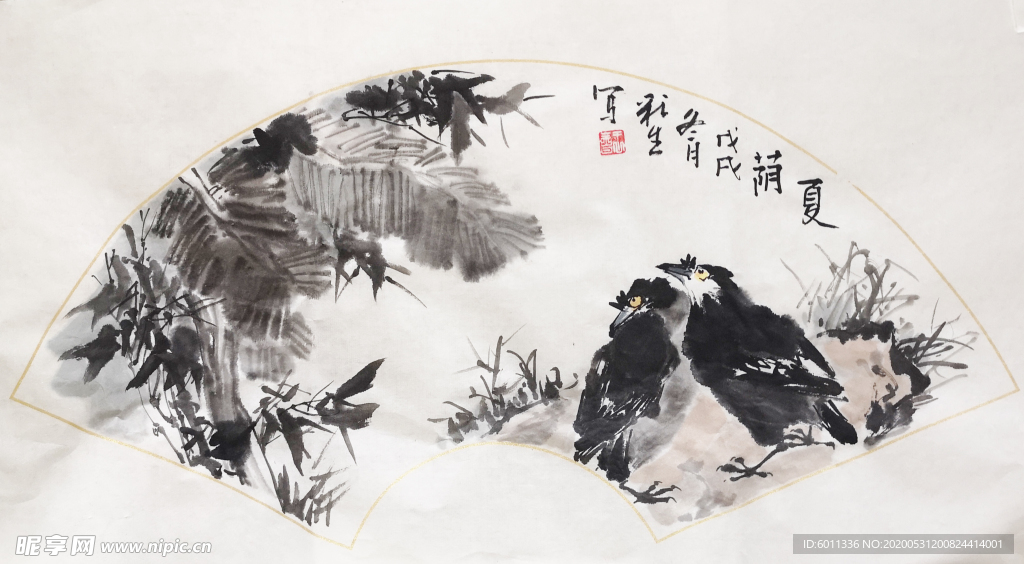 夏
荫
戊戌
冬月
彩生
写
昵享网 www.nipic.cn
ID:6011336 NO:20200531200824414001